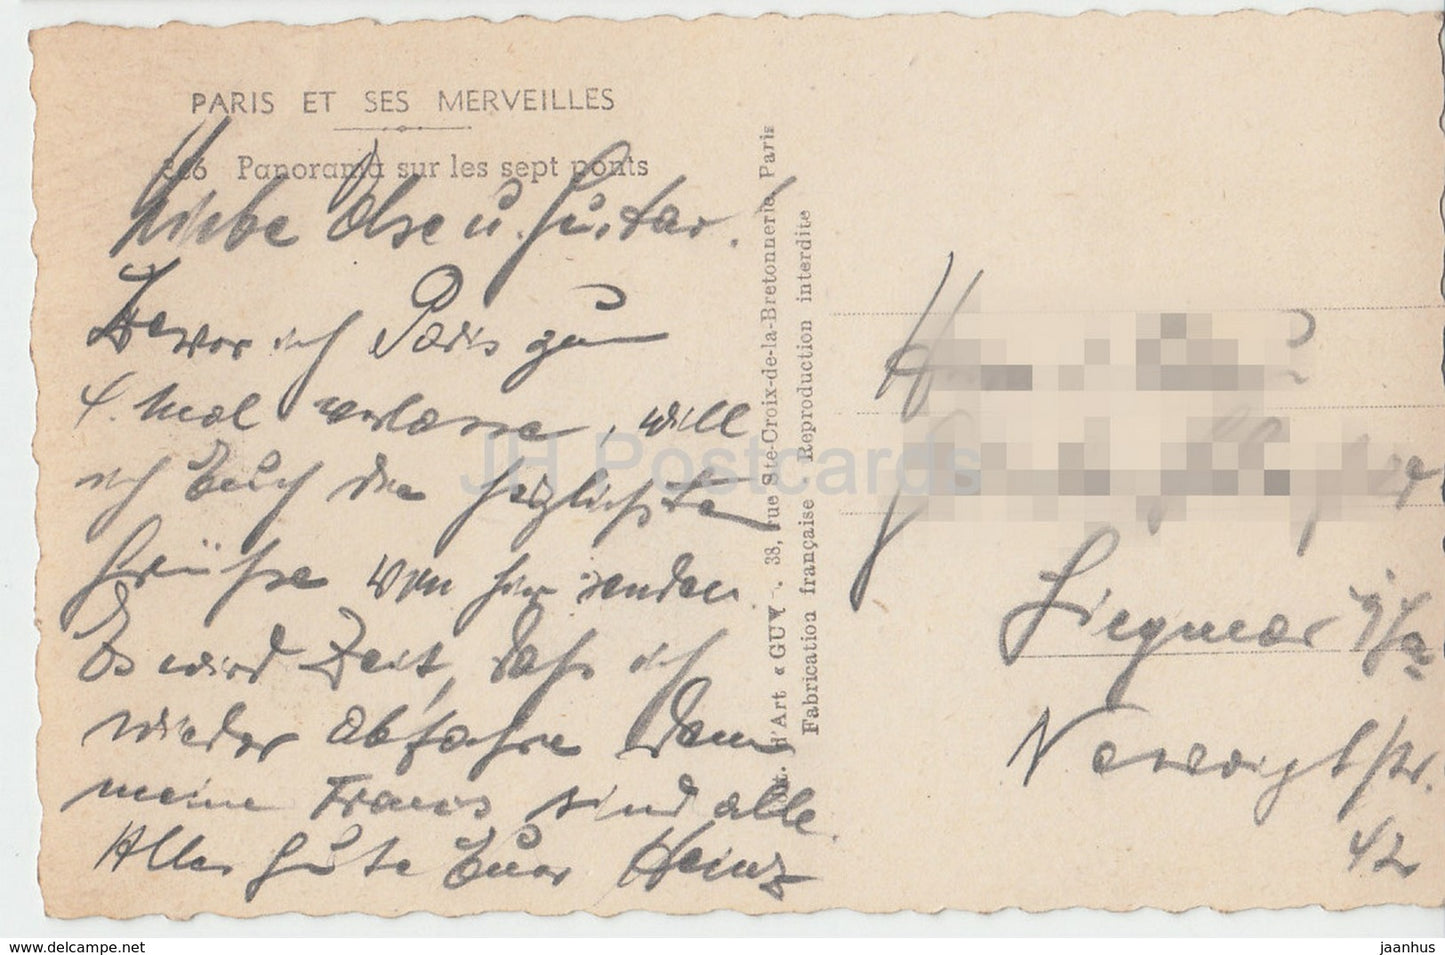 PARIS ET SES MERVEILLES
Panorama sur les sept ponts
Liebe Else u. Gustav.
Bevor ich Paris zum
4. Mal verlasse, will
ich Euch die herzlichsten
Grüße von hier senden.
Es wird Zeit, daß ich
wieder abfahre denn
meine Francs sind alle.
Alles Gute Euer Heinz
d'Art « GUY ». 38, rue Ste-Croix-de-la-Bretonnerie, Paris
Fabrication française Reproduction interdite
Siegmar
42
JH Postcards
https://www.delcampe.net
jaanhus